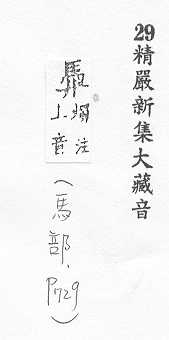 29精嚴新集大藏音
注
上音
(馬部、P729)